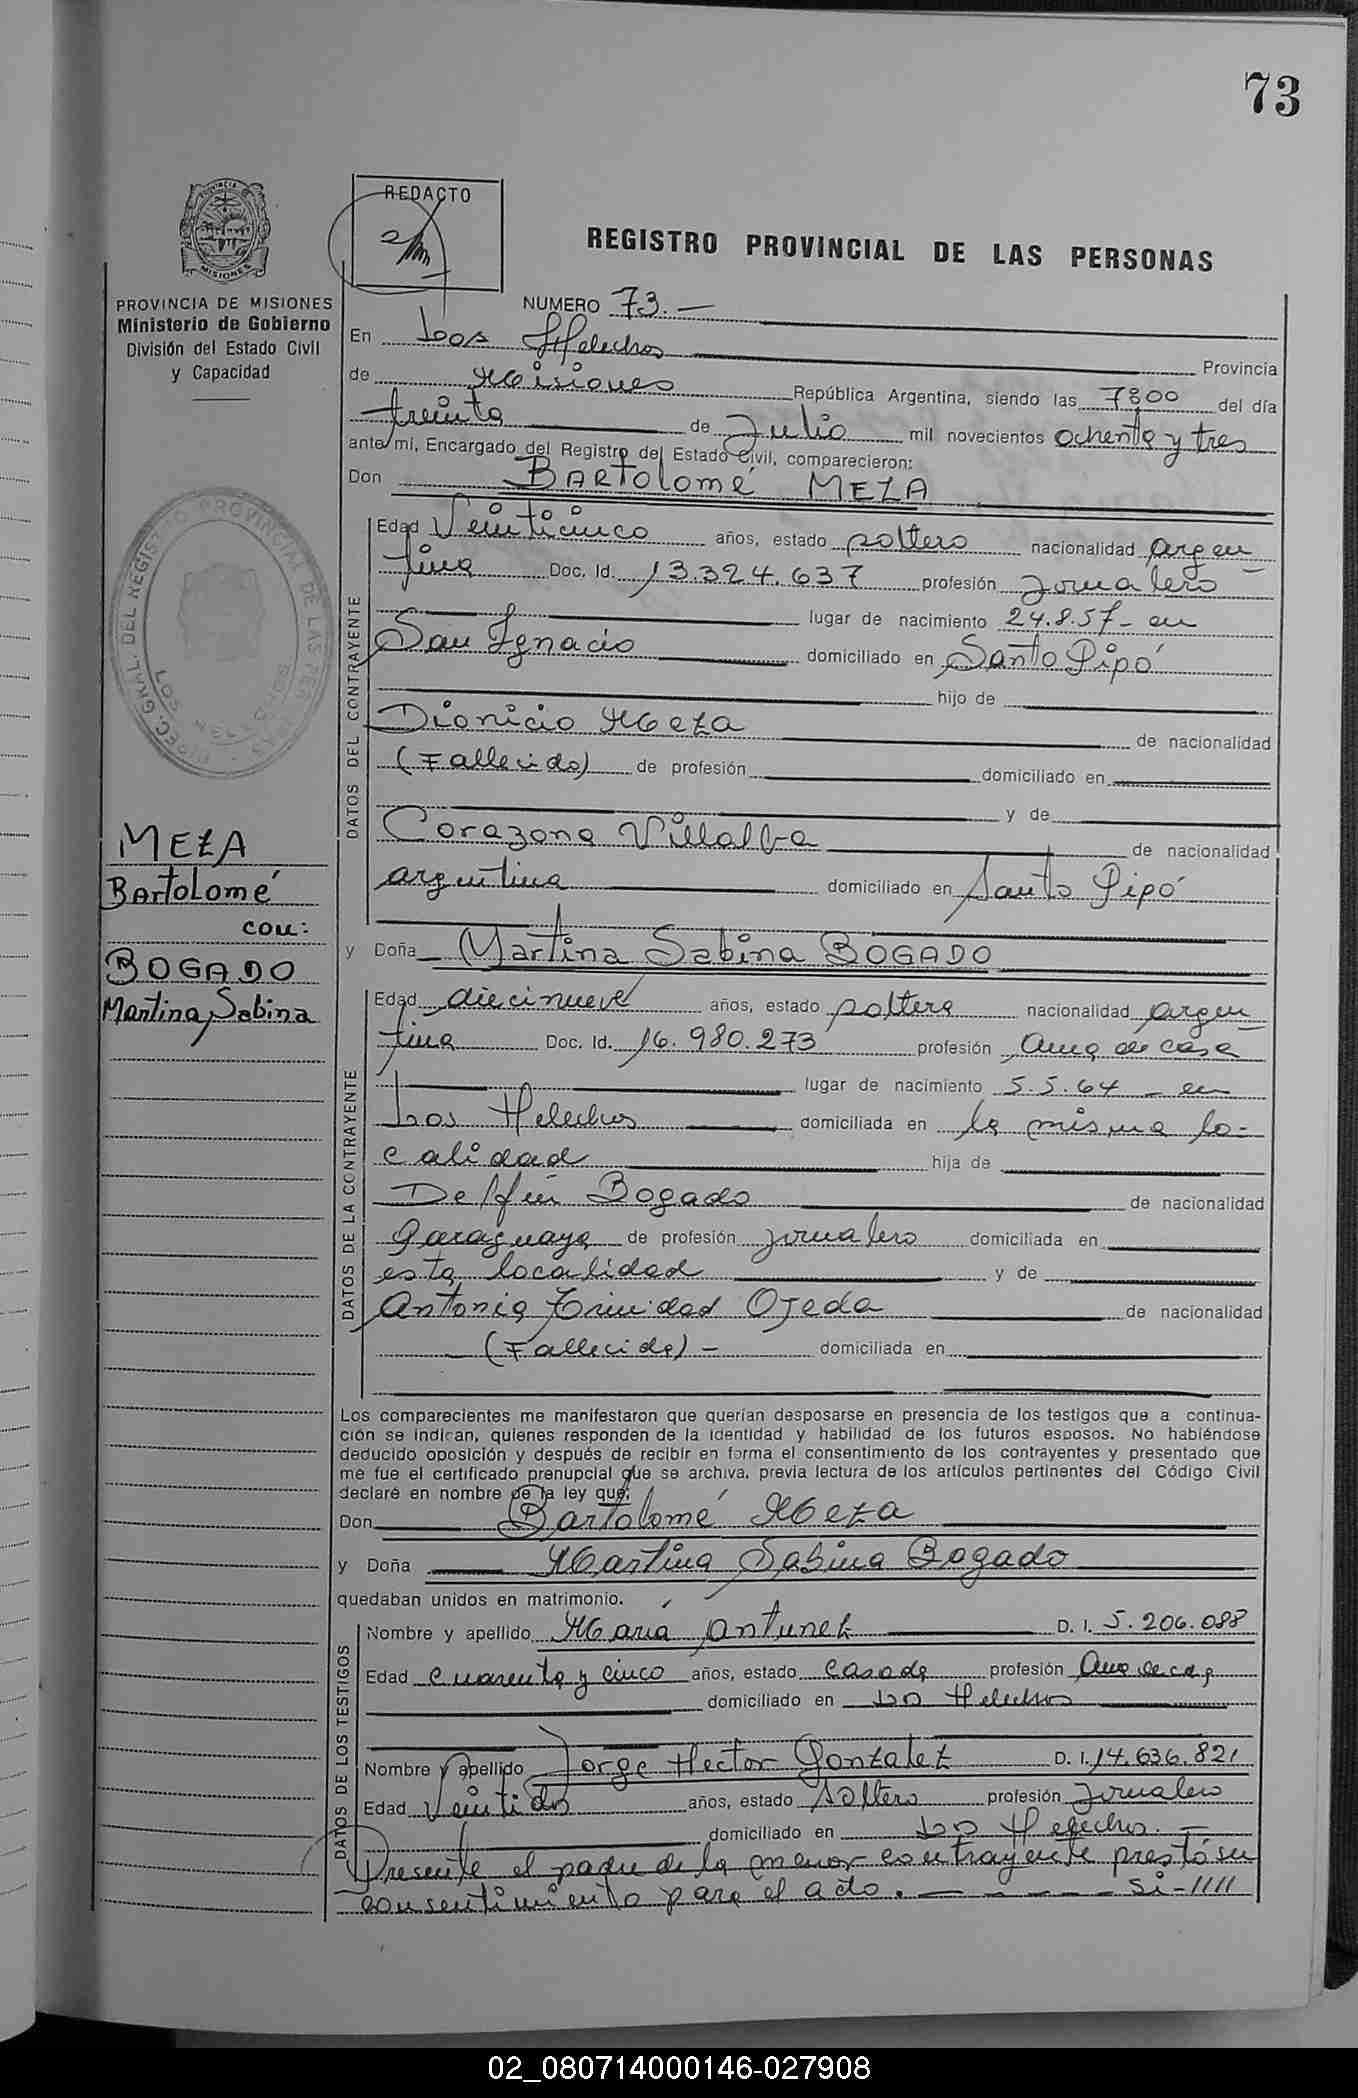 73
REDACTO
PROVINCIA DE MISIONES
Ministerio de Gobierno
División del Estado Civil
y Capacidad
REGISTRO PROVINCIAL DE LAS PERSONAS
NUMERO 73.-
En Los Helechos Provincia
de Misiones República Argentina, siendo las 7:00 del día
treinta de Julio mil novecientos ochenta y tres
ante mí, Encargado del Registro del Estado Civil, comparecieron:
Don BARTOLOMÉ MEZA
DATOS DEL CONTRAYENTE
Edad Veinticinco años, estado soltero nacionalidad argen
tina Doc. Id. 13.324.637 profesión Jornalero
lugar de nacimiento 24.8.57- en
San Ignacio domiciliado en Santo Pipó
hijo de
Dionicio Meza de nacionalidad
(Fallecido) de profesión domiciliado en
y de
Corazona Villalba de nacionalidad
argentina domiciliado en Santo Pipó
MEZA
Bartolomé
con:
BOGADO
Martina Sabina
y Doña Martina Sabina BOGADO
DATOS DE LA CONTRAYENTE
Edad diecinueve años, estado soltera nacionalidad argen
tina Doc. Id. 16.980.273 profesión Ama de casa
lugar de nacimiento 5.5.64 - en
Los Helechos domiciliada en la misma lo-
calidad hija de
Delfín Bogado de nacionalidad
Paraguaya de profesión jornalero domiciliada en
esta localidad y de
Antonia Trinidad Ojeda de nacionalidad
(Fallecida) - domiciliada en
Los comparecientes me manifestaron que querían desposarse en presencia de los testigos que a continua-
ción se indican, quienes responden de la identidad y habilidad de los futuros esposos. No habiéndose
deducido oposición y después de recibir en forma el consentimiento de los contrayentes y presentado que
me fue el certificado prenupcial que se archiva, previa lectura de los artículos pertinentes del Código Civil
declaré en nombre de la ley que:
Don Bartolomé Meza
y Doña Martina Sabina Bogado
quedaban unidos en matrimonio.
DATOS DE LOS TESTIGOS
Nombre y apellido María Antunez D. I. 5.206.088
Edad cuarenta y cinco años, estado casada profesión Ama de casa
domiciliado en Los Helechos
Nombre y apellido Jorge Hector Gonzalez D. I. 14.636.821
Edad Veintidos años, estado soltero profesión Jornalero
domiciliado en Los Helechos. -
Presente el padre de la menor contrayente prestó su
consentimiento para el acto. - - - - - Si-////
02_080714000146-027908